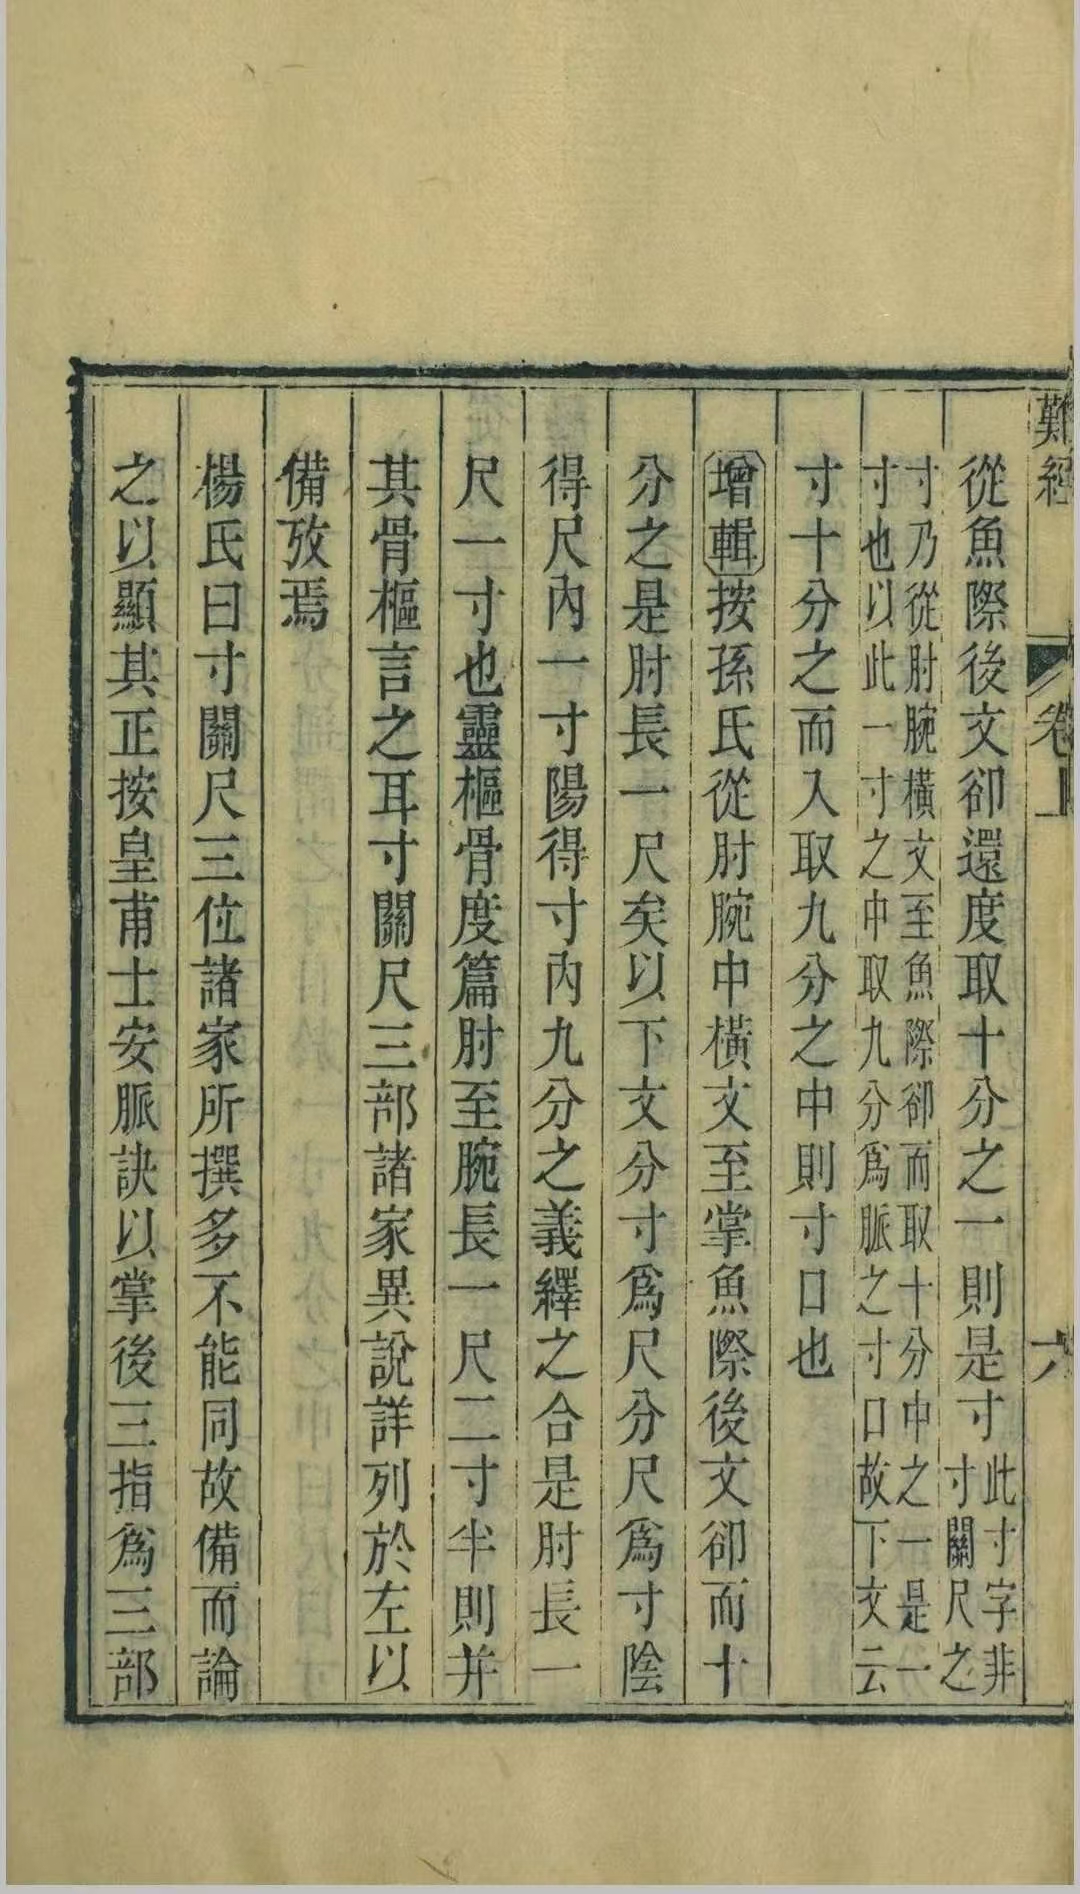 難經
卷上
六
從魚際後文卻還度取十分之一則是寸此寸字非
寸關尺之
寸乃從肘腕橫文至魚際卻而取十分中之一是一
寸也以此一寸之中取九分爲脈之寸口故下文云
寸十分之而入取九分之中則寸口也
增輯按孫氏從肘腕中橫文至掌魚際後文卻而十
分之是肘長一尺矣以下文分寸爲尺分尺爲寸陰
得尺內一寸陽得寸內九分之義繹之合是肘長一
尺一寸也靈樞骨度篇肘至腕長一尺二寸半則并
其骨樞言之耳寸關尺三部諸家異說詳列於左以
備攷焉
楊氏曰寸關尺三位諸家所撰多不能同故備而論
之以顯其正按皇甫士安脈訣以掌後三指爲三部